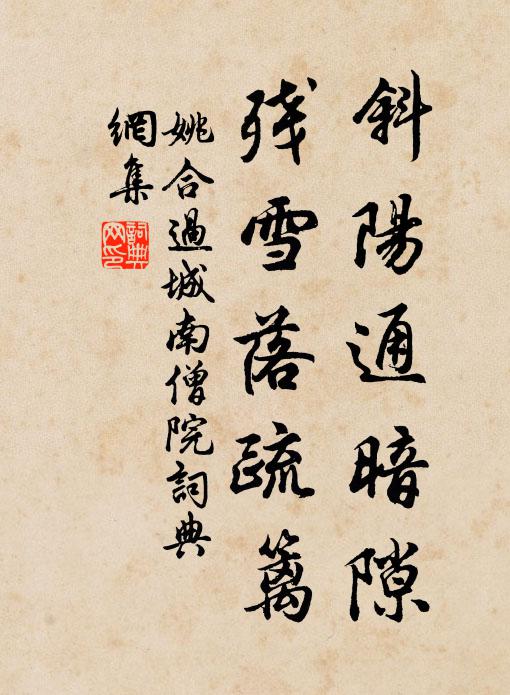 斜陽通暗隙
殘雪落疏籬
姚合過城南僧院詞典
網集
詞典
网印